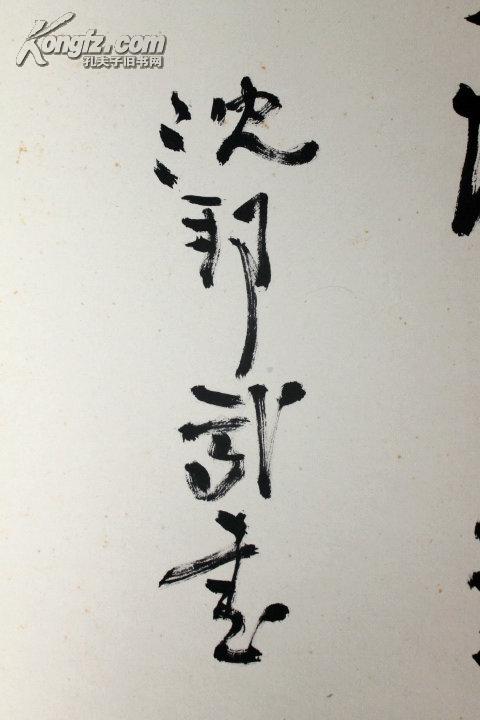 Kongfz.com
孔夫子旧书网
沈邦武書